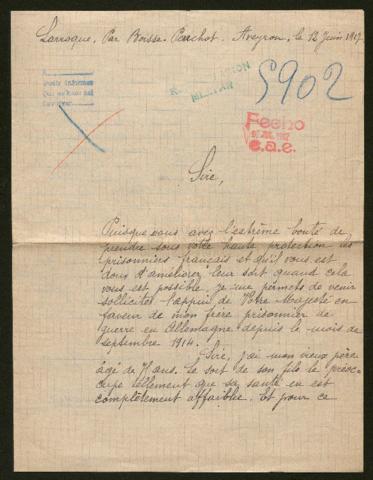 Larroque, Par Boisse-Penchot. Aveyron, le 12 Juin 1917
5902
Fecho
1917
e.a.e.
Sire,
Puisque vous avez l'extrême bonté de
prendre sous votre haute protection les
prisonniers français et qu'il vous est
doux d'améliorer leur sort quand cela
vous est possible, je me permets de venir
solliciter l'appui de Votre Majesté en
faveur de mon frère prisonnier de
guerre en Allemagne depuis le mois de
septembre 1914.
Sire, j'ai mon vieux père
âgé de 71 ans. Le sort de son fils le préoc-
cupe tellement que sa santé en est
complètement affaiblie. Et pour ce